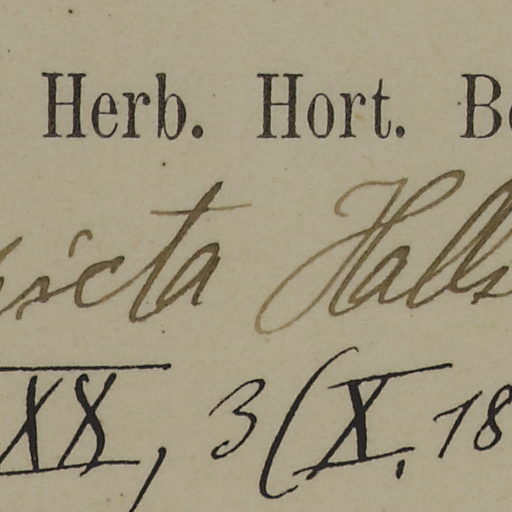 Herb. Hort. B
icta Halls
XX, 3 (X. 18